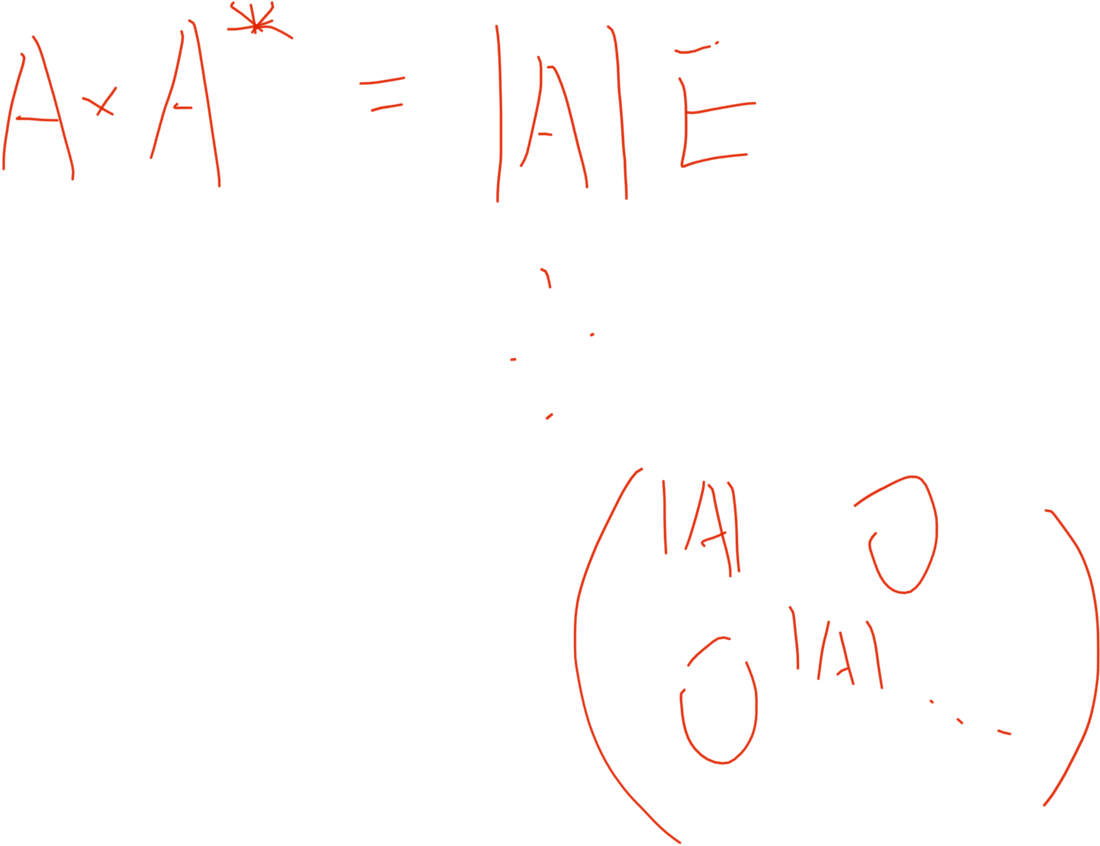 A × A* = |A| E
|A| 0
0 |A| ⋱